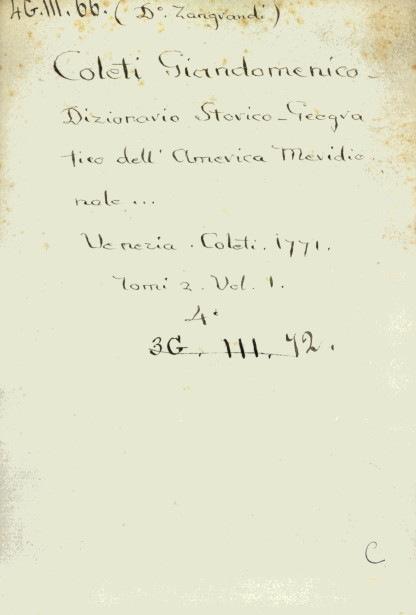 4G.III.66. (D°. Zangrandi)
Coleti Giandomenico -
Dizionario Storico-Geogra
fico dell' America Meridio.
nale ...
Venezia. Coleti. 1771.
Tomi 2. Vol. 1.
4°
3G. III. 72.
C